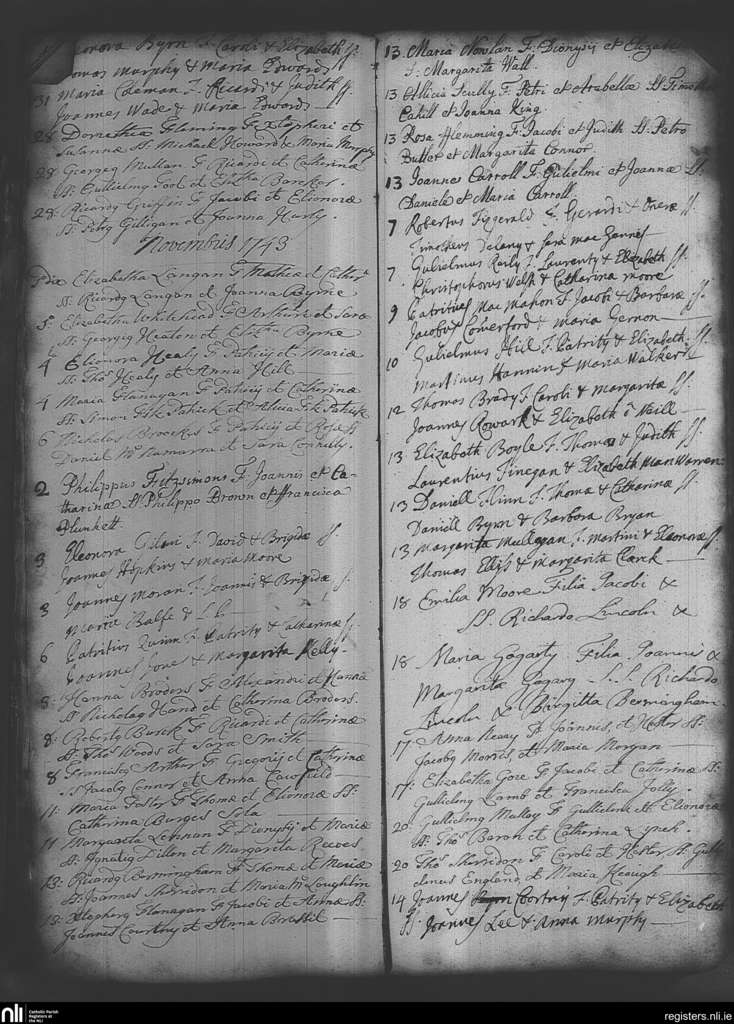 Byrn F. Caroli & Elizabeth SS.
Murphy & Maria Edwards
31 Maria Coleman F. Ricardi & Judith SS.
Joannes Wade & Maria Edwards
28 Dorothea Fleming F.
Susannæ SS. Michael Howard & Maria Murphy
28 Georgeg Mullan F Ricardi et Catherinæ
SS. Gullielmg Fool et
28: Ricardg Griffin F Jacobi et Elionoræ
SS. Petrg Gilligan et Joanna Hurly.
Novembris 1743
Elizabetha Langan F Mathiæ et
SS. Ricardg Langan et Joanna Byrne
Elizabetha Whitehead F Arthuri et Sara
SS. Georgig Heaton et Elizth Byrne
4 Elionora Healy F Patricij et Mariæ
SS. Thos Healy et Anna Hill
4 Maria Flanagan F Patricij et Catherinæ
SS. Simon Fitz Patrick et Alicia Fitz Patrick
6 Nicholas F Patricij et Rosæ SS
Daniel Mc Namarra et Sara
2 Philippus Fitzsimons F. Joannis et Ca-
tharinæ SS Philippo Brown et Francisca
Plunkett.
3 Eleonora F. David & Brigidæ SS.
Joannes Hopkins & Maria Moore
3 Joannes Moran F. Joannis & Brigidæ S.
Balfe &
6 Patritius Quinn F. Patrity & Catharinæ S.
Joannes Jones & Margarita Kelly.
8: Hanna Broders F Alexandri et Hanna
SS Nicholag Hand et Catherina Broders.
8: Robertg F Ricardi et Catherinæ
SS. Thos Woods et Sara Smith
8 Franciscg Arthur F Gregorij et Catherinæ
SS Jacobg Connor et Anna
11: Maria Foster F Thomæ et Elionoræ SS:
Catherina Burges Sola
11 Margareta Lennan F Dionysij et Mariæ
SS. Ignatig Dillon et Margareta Reeves
13: Ricardg Bermingham F Thomæ et Mariæ
SS: Joannes Sherridon et Maria Mc Loughlin
13: Flanagan F Jacobi et Annæ SS:
Joannes Courtny et Anna
13 Maria Nowlan F. Dionysii et Elizab
S. Margarita Wall.
13 Allicia Scully F. Petri et Arabella SS Timothe
Cahill et Joanna King
13 Rosa Flemming F. Jacobi et Judith SS. Petro
Butler et Margarita Connor
13 Joannes Carroll F. Gulielmi et Joannæ SS.
Daniele et Maria Carroll.
7 Robertus Fizgerald F. Gerardi & SS.
Timotheus Delany & Sara Mac
7 Gulielmus Raily F. Laurenty & Elizabeth SS.
Christophorus Walsh & Catharina Moore
9 Patritius Mac Mahon F. Jacobi & Barbaræ SS.
Jacobus Comerford & Maria Gernon
10 Gulielmus Hill F. Patrity & Elizabeth SS.
Martinus Hannin & Maria Walker
12 Thomas Brady F. Caroli & Margaritæ SS.
Joannes Rowark & Elizabeth ô Neill
13 Elizabeth Boyle F. Thomæ & Judith SS.
Laurentius Finegan & Elizabeth
13 Daniell Flinn F. Thomæ & Catharinæ SS.
Daniell Byrn & Barbara Bryan
13 Margarita Mullegan F. Martini & Eleonoræ SS.
Thomas Elliss & Margarita Clerck
18 Emilia Moore Filia Jacobi &
SS. Richardo Lincoln &
18 Maria Gogarty Filia Joannis &
Margarita Gogary S.S. Richardo
Lincoln & Birgitta Bermingham
17 Anna Neary F Joannis, et Hester SS.
Jacobg Morris, et Maria Morgan
17: Elizabetha Gore F Jacobi et Catherinæ SS.
Gullielmg Lamb et Francisca Jolly.
20: Gullielmg Mallay F Gullielmi et Elionoræ
SS. Thos Baron et Catherina Lynch.
20 Thos Sherridon F Caroli et Hester SS. Gulli
elmus England et Maria Keough
14 Joannes Cortny F. Patrity & Elizabeth
SS. Joannes Lee & Anna Murphy
nli
Catholic Parish
Registers at
the NLI
registers.nli.ie